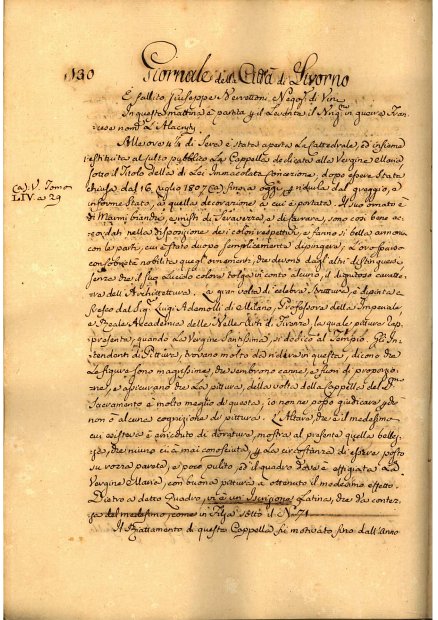 130
Giornale della Città di Livorno
È fallito Giuseppe Nerottoni, Negoz. di Vini
In questa mattina è partita p il Levante il Navig. in guerra Fran
cese nom. L'Alacrity
Alle ore 4½ di sera è stata aperta la Cattedrale, ed insieme
restituita al culto pubblico la Cappella dedicata alla Vergine Maria
sotto il titolo della di Lei Immacolata Concezione, dopo essere stata
chiusa dal 16, luglio 1807 (a) sino a oggi, e ridutta dal greggio, a
informe stato, a quella decorazione a cui è portata. Il suo ornato è
(a) V. Tomo
LIV. a 29
di Marmi bianchi, e misti di Seravezza, e di Carrara, sono così bene ac
cordati nella disposizione dei colori respettivi, e fanno sì bella armonia
con le parti, cui è stato duopo semplicemente dipingere; L'oro spar
so nobilita quegl' ornamenti, che devono dagl' altri distinguersi
senza che il suo lucido colore tolga in conto alcuno, il dignitoso caratte
re dell' Architettura. La gran volta di celebre pittura, è dipinta a
fresco dal Sig. Luigi Adamolli di Milano, Professore della Imperiale,
e Reale Accademia delle Belle Arti di Firenze, la quale pittura rap
presenta, quando la Vergine Santissima, si dedicò al Tempio. Gl' In
tendenti di Pittura, trovano molto da ridire in questa, dicono che
le figure sono magrissime, che sembrono carne, e fuori di proporzio
ne, e assicurano che la pittura, della volta della Cappella del S.
Sacramento è molto meglio di questa, io non ne posso giudicare p che
non ò alcuna cognizione di pittura. L'Altare, che è il medesimo
cui esisteva è arricchito di doratura, mostra al presente quella bellez
za, che niuno ci à mai conosciuta, p la circostanza di essere posto
su rozza parete, e poco pulito, ed il quadro dove è effigiata la
Vergine Maria, con buona pittura à ottenuto il medesimo effetto.
Dietro a detto Quadro, vi è un' Iscrizione Latina, che si conter
sa dal medesimo, come in Filza sotto il N° 71
Il Riattamento di questa Cappella fu motivato sino dall' anno